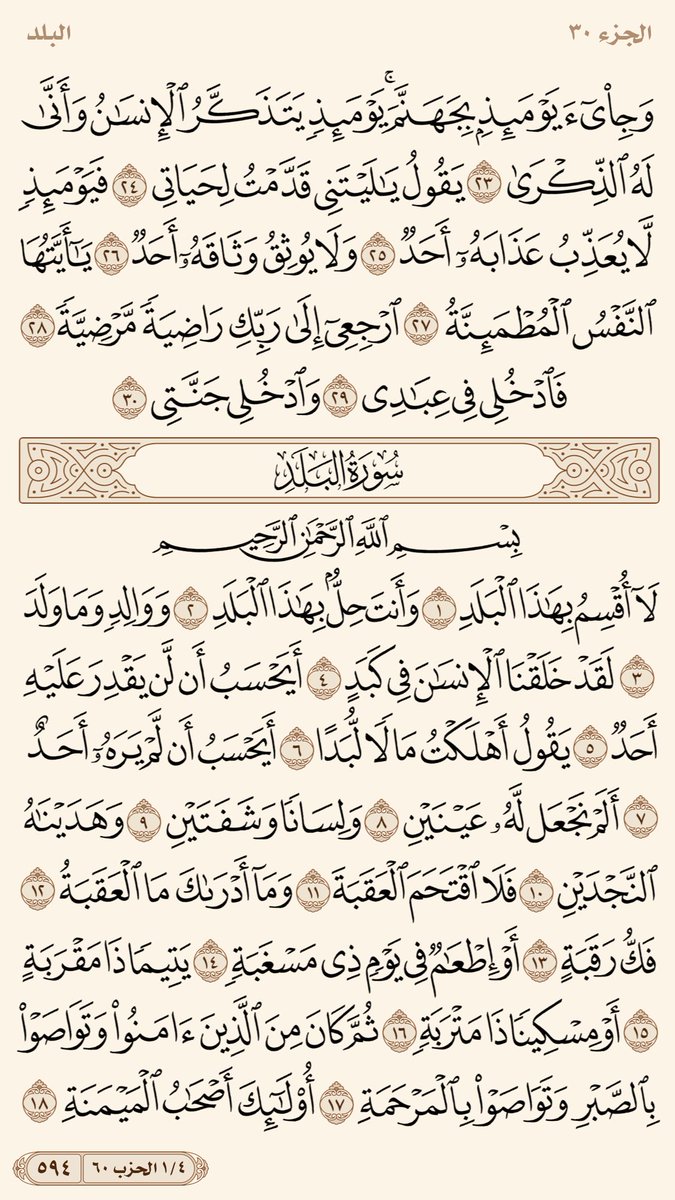 الجزء ٣٠
البلد
وَجِا۟يٓءَ يَوْمَئِذِۭ بِجَهَنَّمَ ۚ يَوْمَئِذٍ يَتَذَكَّرُ ٱلْإِنسَٰنُ وَأَنَّىٰ
لَهُ ٱلذِّكْرَىٰ ٢٣ يَقُولُ يَٰلَيْتَنِى قَدَّمْتُ لِحَيَاتِى ٢٤ فَيَوْمَئِذٍ
لَّا يُعَذِّبُ عَذَابَهُۥٓ أَحَدٌ ٢٥ وَلَا يُوثِقُ وَثَاقَهُۥٓ أَحَدٌ ٢٦ يَٰٓأَيَّتُهَا
ٱلنَّفْسُ ٱلْمُطْمَئِنَّةُ ٢٧ ٱرْجِعِىٓ إِلَىٰ رَبِّكِ رَاضِيَةً مَّرْضِيَّةً ٢٨
فَٱدْخُلِى فِى عِبَٰدِى ٢٩ وَٱدْخُلِى جَنَّتِى ٣٠
سُورَةُ البَلَدِ
بِسْمِ ٱللَّهِ ٱلرَّحْمَٰنِ ٱلرَّحِيمِ
لَآ أُقْسِمُ بِهَٰذَا ٱلْبَلَدِ ١ وَأَنتَ حِلٌّۢ بِهَٰذَا ٱلْبَلَدِ ٢ وَوَالِدٍ وَمَا وَلَدَ
٣ لَقَدْ خَلَقْنَا ٱلْإِنسَٰنَ فِى كَبَدٍ ٤ أَيَحْسَبُ أَن لَّن يَقْدِرَ عَلَيْهِ
أَحَدٌ ٥ يَقُولُ أَهْلَكْتُ مَالًا لُّبَدًا ٦ أَيَحْسَبُ أَن لَّمْ يَرَهُۥٓ أَحَدٌ
٧ أَلَمْ نَجْعَل لَّهُۥ عَيْنَيْنِ ٨ وَلِسَانًا وَشَفَتَيْنِ ٩ وَهَدَيْنَٰهُ
ٱلنَّجْدَيْنِ ١٠ فَلَا ٱقْتَحَمَ ٱلْعَقَبَةَ ١١ وَمَآ أَدْرَىٰكَ مَا ٱلْعَقَبَةُ ١٢
فَكُّ رَقَبَةٍ ١٣ أَوْ إِطْعَٰمٌ فِى يَوْمٍ ذِى مَسْغَبَةٍ ١٤ يَتِيمًا ذَا مَقْرَبَةٍ
١٥ أَوْ مِسْكِينًا ذَا مَتْرَبَةٍ ١٦ ثُمَّ كَانَ مِنَ ٱلَّذِينَ ءَامَنُوا۟ وَتَوَاصَوْا۟
بِٱلصَّبْرِ وَتَوَاصَوْا۟ بِٱلْمَرْحَمَةِ ١٧ أُو۟لَٰٓئِكَ أَصْحَٰبُ ٱلْمَيْمَنَةِ ١٨
١/٤ الحزب ٦٠
٥٩٤